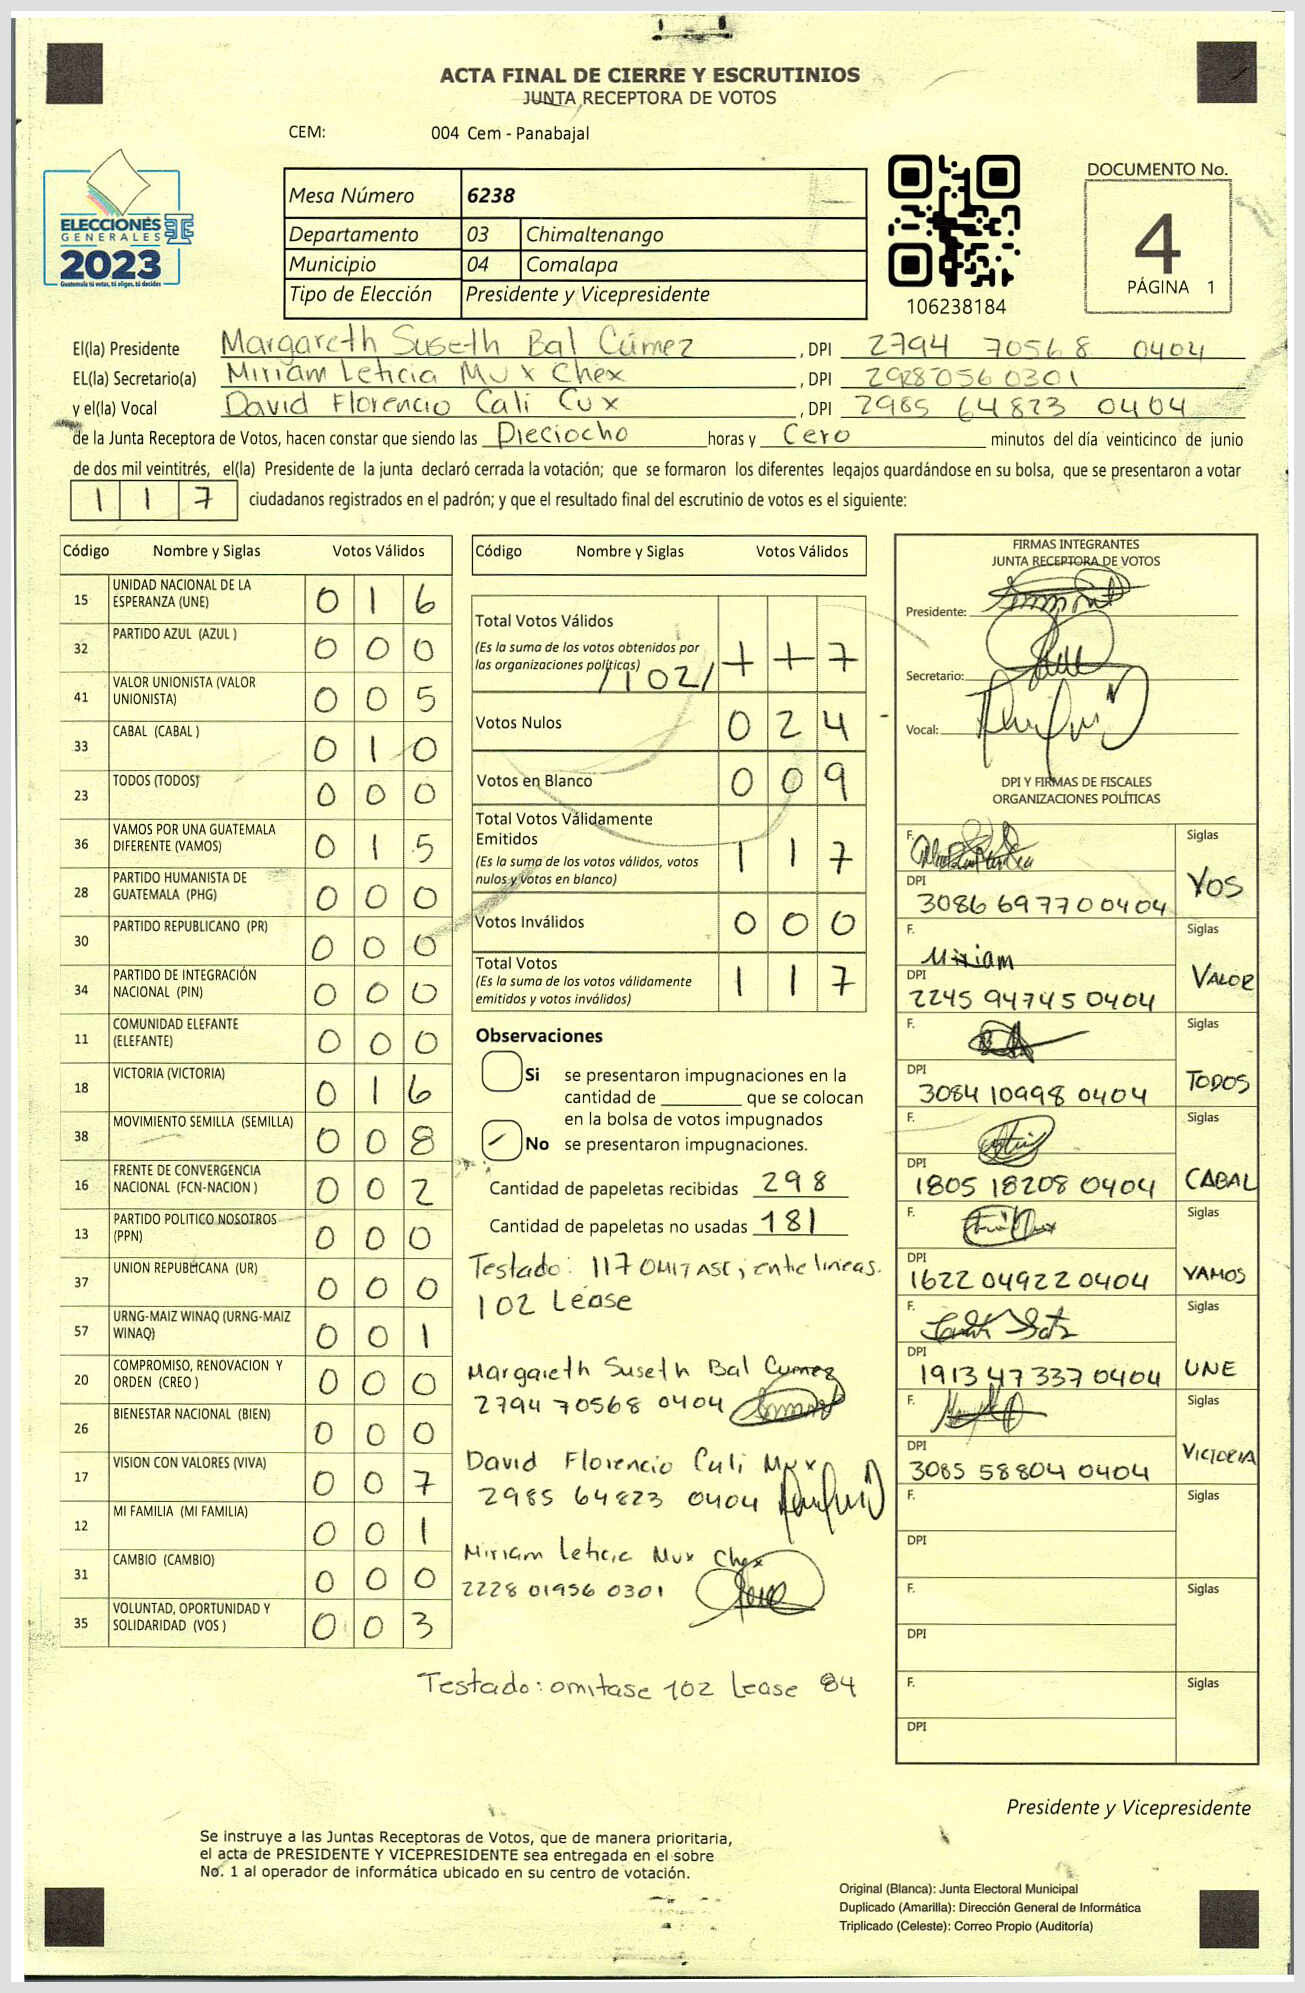 ACTA FINAL DE CIERRE Y ESCRUTINIOS
JUNTA RECEPTORA DE VOTOS
CEM: 004 Cem - Panabajal
ELECCIONES
GENERALES
2023
Guatemala tú votas, tú eliges, tú decides
Mesa Número 6238
Departamento 03 Chimaltenango
Municipio 04 Comalapa
Tipo de Elección Presidente y Vicepresidente
106238184
DOCUMENTO No.
4
PÁGINA 1
El(la) Presidente Margareth Suseth Bal Cúmez , DPI 2794 70568 0404
EL(la) Secretario(a) Miriam Leticia Mux Chex , DPI
y el(la) Vocal David Florencio Cali Cux , DPI 2985 64823 0404
de la Junta Receptora de Votos, hacen constar que siendo las Dieciocho horas y Cero minutos del día veinticinco de junio
de dos mil veintitrés, el(la) Presidente de la junta declaró cerrada la votación; que se formaron los diferentes legajos guardándose en su bolsa, que se presentaron a votar
1 1 7 ciudadanos registrados en el padrón; y que el resultado final del escrutinio de votos es el siguiente:
Código Nombre y Siglas Votos Válidos
15 UNIDAD NACIONAL DE LA ESPERANZA (UNE) 0 1 6
32 PARTIDO AZUL (AZUL ) 0 0 0
41 VALOR UNIONISTA (VALOR UNIONISTA) 0 0 5
33 CABAL (CABAL ) 0 1 0
23 TODOS (TODOS) 0 0 0
36 VAMOS POR UNA GUATEMALA DIFERENTE (VAMOS) 0 1 5
28 PARTIDO HUMANISTA DE GUATEMALA (PHG) 0 0 0
30 PARTIDO REPUBLICANO (PR) 0 0 0
34 PARTIDO DE INTEGRACIÓN NACIONAL (PIN) 0 0 0
11 COMUNIDAD ELEFANTE (ELEFANTE) 0 0 0
18 VICTORIA (VICTORIA) 0 1 6
38 MOVIMIENTO SEMILLA (SEMILLA) 0 0 8
16 FRENTE DE CONVERGENCIA NACIONAL (FCN-NACION ) 0 0 2
13 PARTIDO POLITICO NOSOTROS (PPN) 0 0 0
37 UNION REPUBLICANA (UR) 0 0 0
57 URNG-MAIZ WINAQ (URNG-MAIZ WINAQ) 0 0 1
20 COMPROMISO, RENOVACION Y ORDEN (CREO ) 0 0 0
26 BIENESTAR NACIONAL (BIEN) 0 0 0
17 VISION CON VALORES (VIVA) 0 0 7
12 MI FAMILIA (MI FAMILIA) 0 0 1
31 CAMBIO (CAMBIO) 0 0 0
35 VOLUNTAD, OPORTUNIDAD Y SOLIDARIDAD (VOS ) 0 0 3
Código Nombre y Siglas Votos Válidos
Total Votos Válidos
(Es la suma de los votos obtenidos por
las organizaciones políticas) /102/ 1 1 7
Votos Nulos 0 2 4
Votos en Blanco 0 0 9
Total Votos Válidamente
Emitidos
(Es la suma de los votos válidos, votos
nulos y votos en blanco) 1 1 7
Votos Inválidos 0 0 0
Total Votos
(Es la suma de los votos válidamente
emitidos y votos inválidos) 1 1 7
Observaciones
Si se presentaron impugnaciones en la
cantidad de ________ que se colocan
en la bolsa de votos impugnados
No se presentaron impugnaciones.
Cantidad de papeletas recibidas 298
Cantidad de papeletas no usadas 181
Testado: 117 OMITASE; entre lineas.
102 Lease
Margareth Suseth Bal Cumez
2794 70568 0404
David Florencio Cali Mux
2985 64823 0404
Miriam Leticia Mux Chex
2228 01956 0301
Testado: omitase 102 Lease 84
FIRMAS INTEGRANTES
JUNTA RECEPTORA DE VOTOS
Presidente:
Secretario:
Vocal:
DPI Y FIRMAS DE FISCALES
ORGANIZACIONES POLÍTICAS
F. Siglas
DPI VOS
3086 69770 0404
F. Miriam Siglas
DPI VALOR
2245 94745 0404
F. Siglas
DPI TODOS
3084 10998 0404
F. Siglas
DPI CABAL
1805 18208 0404
F. Siglas
DPI VAMOS
1622 04922 0404
F. Siglas
DPI UNE
1913 47337 0404
F. Siglas
DPI VICTORIA
3085 58804 0404
F. Siglas
DPI
F. Siglas
DPI
F. Siglas
DPI
Presidente y Vicepresidente
Se instruye a las Juntas Receptoras de Votos, que de manera prioritaria,
el acta de PRESIDENTE Y VICEPRESIDENTE sea entregada en el sobre
No. 1 al operador de informática ubicado en su centro de votación.
Original (Blanca): Junta Electoral Municipal
Duplicado (Amarilla): Dirección General de Informática
Triplicado (Celeste): Correo Propio (Auditoría)